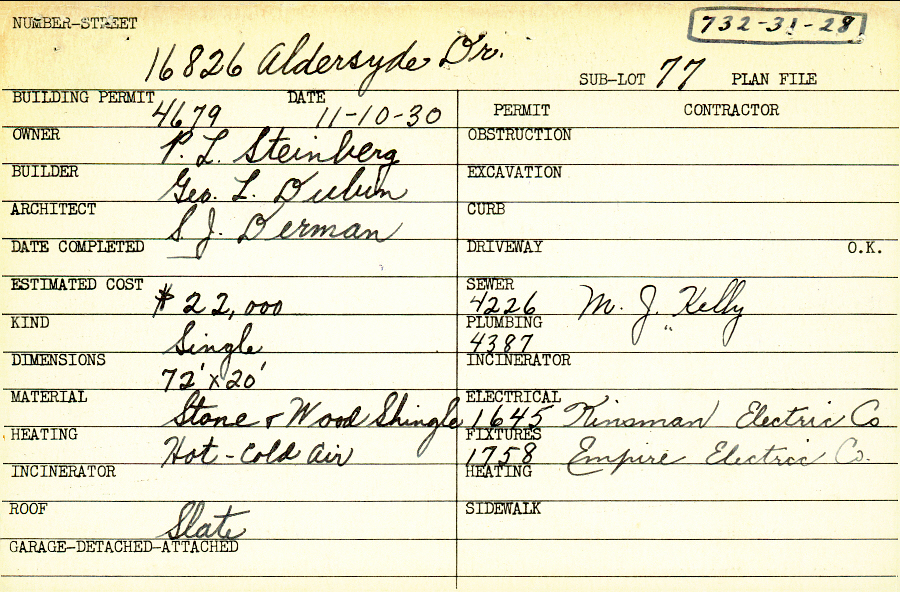 NUMBER-STREET
732-31-28
16826 Aldersyde Dr.
SUB-LOT 77 PLAN FILE
BUILDING PERMIT 4679 DATE 11-10-30
OWNER P. L. Steinberg
BUILDER Geo. L. Dubin
ARCHITECT S. J. Berman
DATE COMPLETED
ESTIMATED COST $22,000
KIND Single
DIMENSIONS 72' x 20'
MATERIAL Stone & Wood Shingle
HEATING Hot-Cold Air
INCINERATOR
ROOF Slate
GARAGE-DETACHED-ATTACHED
PERMIT CONTRACTOR
OBSTRUCTION
EXCAVATION
CURB
DRIVEWAY O.K.
SEWER 4226 M. J. Kelly
PLUMBING 4387 "
INCINERATOR
ELECTRICAL 1645 Kinsman Electric Co
FIXTURES 1758 Empire Electric Co.
HEATING
SIDEWALK